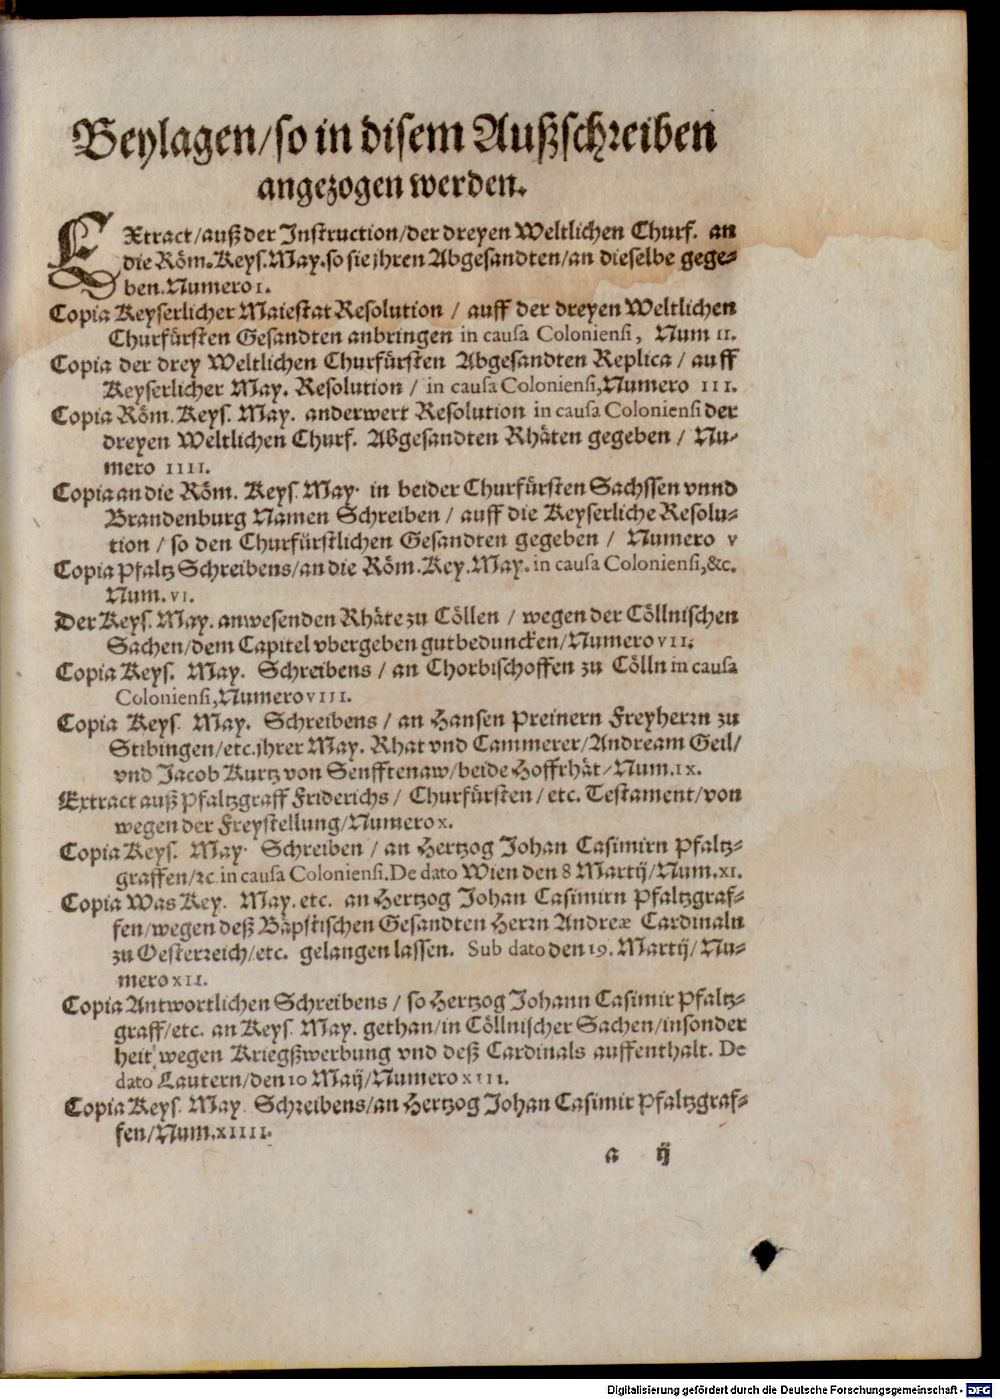 Beylagen/so in disem Außschreiben
angezogen werden.
EXtract/auß der Instruction/der dreyen Weltlichen Churf. an
die Röm. Keys. May. so sie jhren Abgesandten/an dieselbe gege-
ben. Numero I.
Copia Keyserlicher Maiestat Resolution / auff der dreyen Weltlichen
Churfürsten Gesandten anbringen in causa Coloniensi, Num II.
Copia der drey Weltlichen Churfürsten Abgesandten Replica / auff
Keyserlicher May. Resolution / in causa Coloniensi, Numero III.
Copia Röm. Keys. May. anderwert Resolution in causa Coloniensi der
dreyen Weltlichen Churf. Abgesandten Rhäten gegeben / Nu-
mero IIII.
Copia an die Röm. Keys. May. in beider Churfürsten Sachssen vnnd
Brandenburg Namen Schreiben / auff die Keyserliche Resolu-
tion / so den Churfürstlichen Gesandten gegeben / Numero V
Copia Pfaltz Schreibens/an die Röm. Key. May. in causa Coloniensi, &c.
Num. VI.
Der Keys. May. anwesenden Rhäte zu Cöllen / wegen der Cöllnischen
Sachen/dem Capitel vbergeben gutbeduncken/Numero VII.
Copia Keys. May. Schreibens / an Chorbischoffen zu Cölln in causa
Coloniensi, Numero VIII.
Copia Keys. May. Schreibens / an Hansen Preinern Freyherrn zu
Stibingen/etc. jhrer May. Rhat vnd Cammerer/Andream Geil/
vnd Jacob Kurtz von Senfftenaw/beide Hoffrhät/Num. IX.
Extract auß Pfaltzgraff Friderichs / Churfürsten / etc. Testament/von
wegen der Freystellung/Numero X.
Copia Keys. May. Schreiben / an Hertzog Johan Casimirn Pfaltz-
graffen/ꝛc. in causa Coloniensi. De dato Wien den 8 Martij/Num. XI.
Copia Was Key. May. etc. an Hertzog Johan Casimirn Pfaltzgraf-
fen/wegen deß Bäpstischen Gesandten Herrn Andreæ Cardinaln
zu Oesterreich/etc. gelangen lassen. Sub dato den 19. Martij/Nu-
mero XII.
Copia Antwortlichen Schreibens / so Hertzog Johann Casimir Pfaltz-
graff/etc. an Keys. May. gethan/in Cöllnischer Sachen/insonder
heit wegen Kriegßwerbung vnd deß Cardinals auffenthalt. De
dato Lautern/den 10 Maij/Numero XIII.
Copia Keys. May. Schreibens/an Hertzog Johan Casimir Pfaltzgraf-
fen/Num. XIIII.
a ij
Digitalisierung gefördert durch die Deutsche Forschungsgemeinschaft - DFG